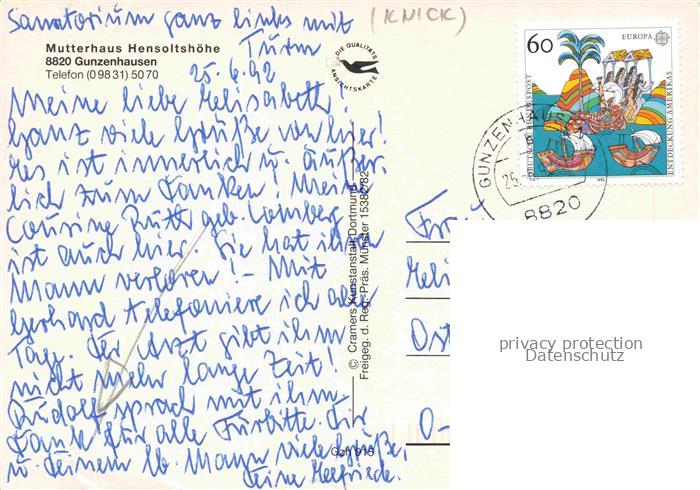 Sanatorium ganz links mit
Turm
(KNICK)
Mutterhaus Hensoltshöhe
8820 Gunzenhausen
Telefon (0 98 31) 50 70
25.6.92
DIE QUALITÄTS
ANSICHTSKARTE
Meine liebe Melisabeth!
Ganz viele Grüße von hier!
Es ist innerlich u. äußer-
lich zum Danken! Meine
Cousine Ruth geb. Lomberg
ist auch hier. Sie hat ihren
Mann verloren! – Mit
Gerhard telefoniere ich alle
Tage. Der Arzt gibt ihm
nicht mehr lange Zeit!
Rudolf sprach mit ihm.
Dank für alle Fürbitte. Dir
u. Deinem lb. Mann viele Grüße,
Deine Elfriede.
© Cramers Kunstanstalt Dortmund
Freigeg. d. Reg.-Präs. Münster 15382/82
Gzh 015
60
EUROPA
DEUTSCHE BUNDESPOST
ENTDECKUNG AMERIKAS
GUNZENHAUS
25.
8820
Frau
Meli
Ost
O-
privacy protection
Datenschutz